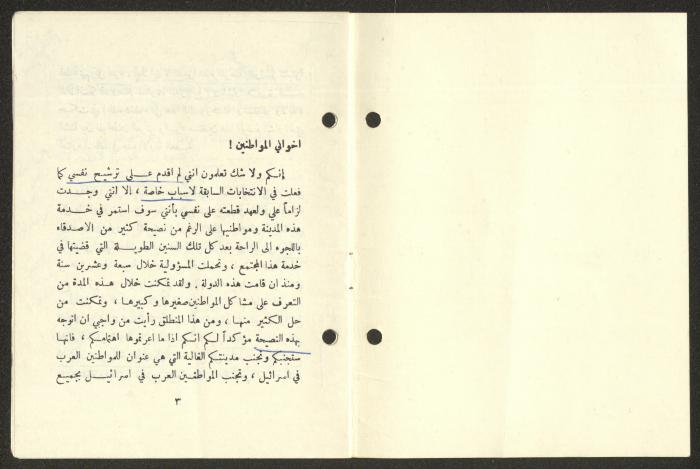 اخواني المواطنين !
إنكم ولا شك تعلمون انني لم اقدم عـلـى ترشيح نفسي كما
فعلت في الانتخابات السابقة لاسباب خاصة ، إلا انني وجـدت
لزاماً علي ولعهد قطعته على نفسي بأنني سوف استمر في خـدمة
هذه المدينة ومواطنيها على الرغم من نصيحة كثير من الاصدقاء
باللجوء الى الراحة بعد كل تلك السنين الطويـلـة التي قضيتها في
خدمة هذا المجتمع ، وتحملت المسؤولية خلال سبعة وعشريـن سنة
ومنذ ان قامت هذه الدولة . ولقد تمكنت خلال هـذه المدة من
التعرف على مشاكل المواطنين صغيرها وكبيرهـا ، وتمكنت من
حل الكثير منهـا ، ومن هذا المنطلق رأيت من واجبي ان اتوجه
بهذه النصيحة مؤكداً لـكم انكم اذا ما اعرتموها اهتمامكم ، فانهـا
ستجنبكم وتجنب مدينتكم الغالية التي هي عنوان للمواطنين العرب
في اسرائيل ، وتجنب المواطنـين العرب في اسرائيـل بجميـع
٣